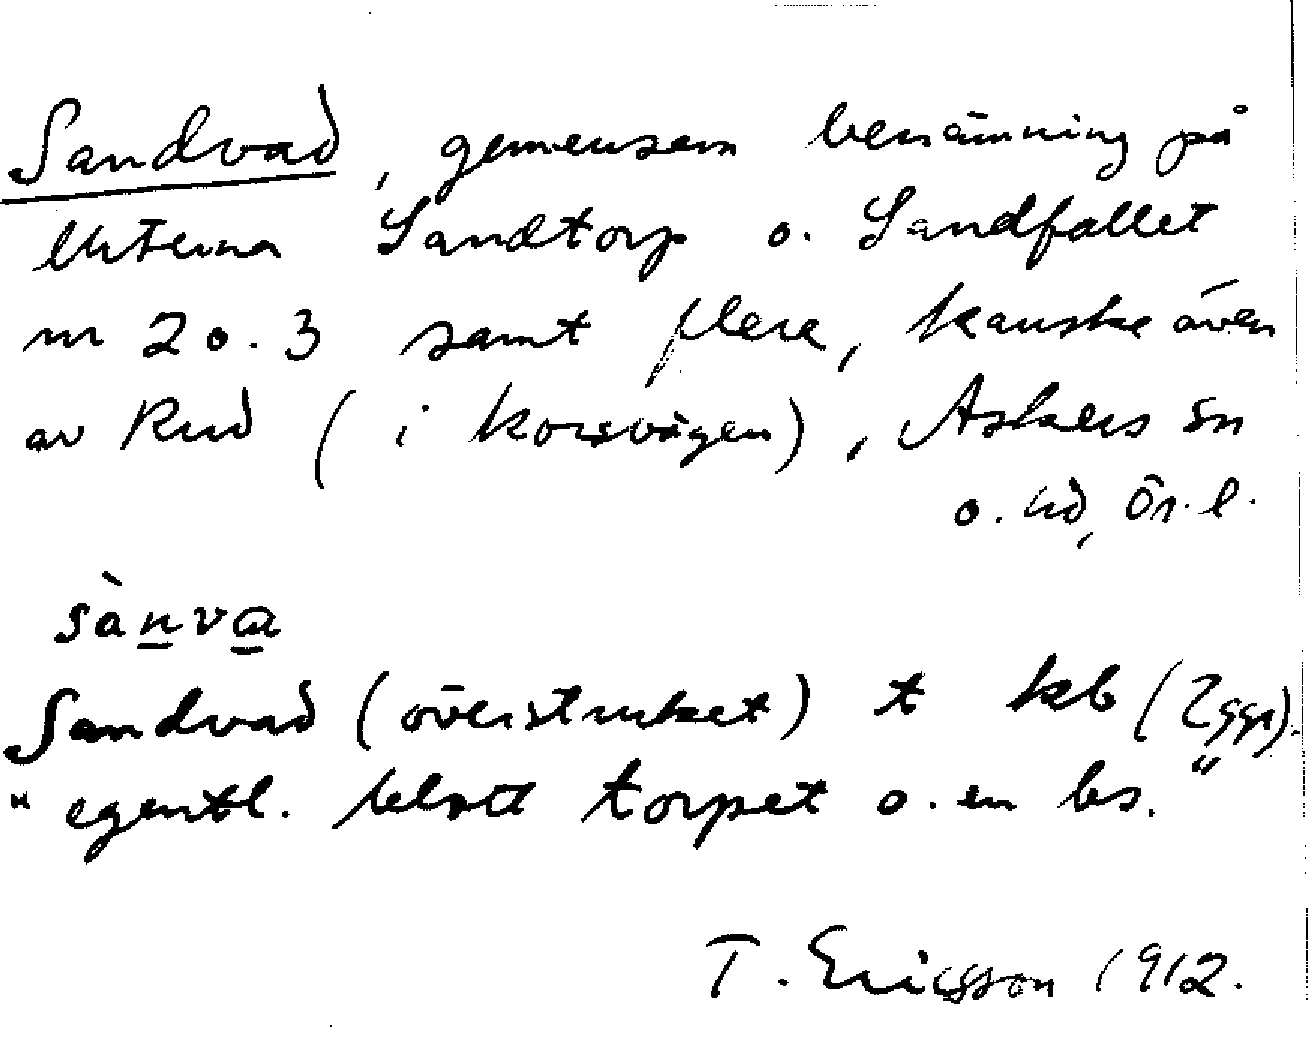 Sandvad, gemensam benämning på
Utterna Sandtorp o. Sandfallet
nr 2 o. 3 samt flere, kanske även
av Rud (i korsvägen), Askers sn
o. hd, Ör. l.
sànva
Sandvad (överstruket) t kb (2 ggr).
"egentl. blott torpet o. en bs."
T. Ericsson 1912.